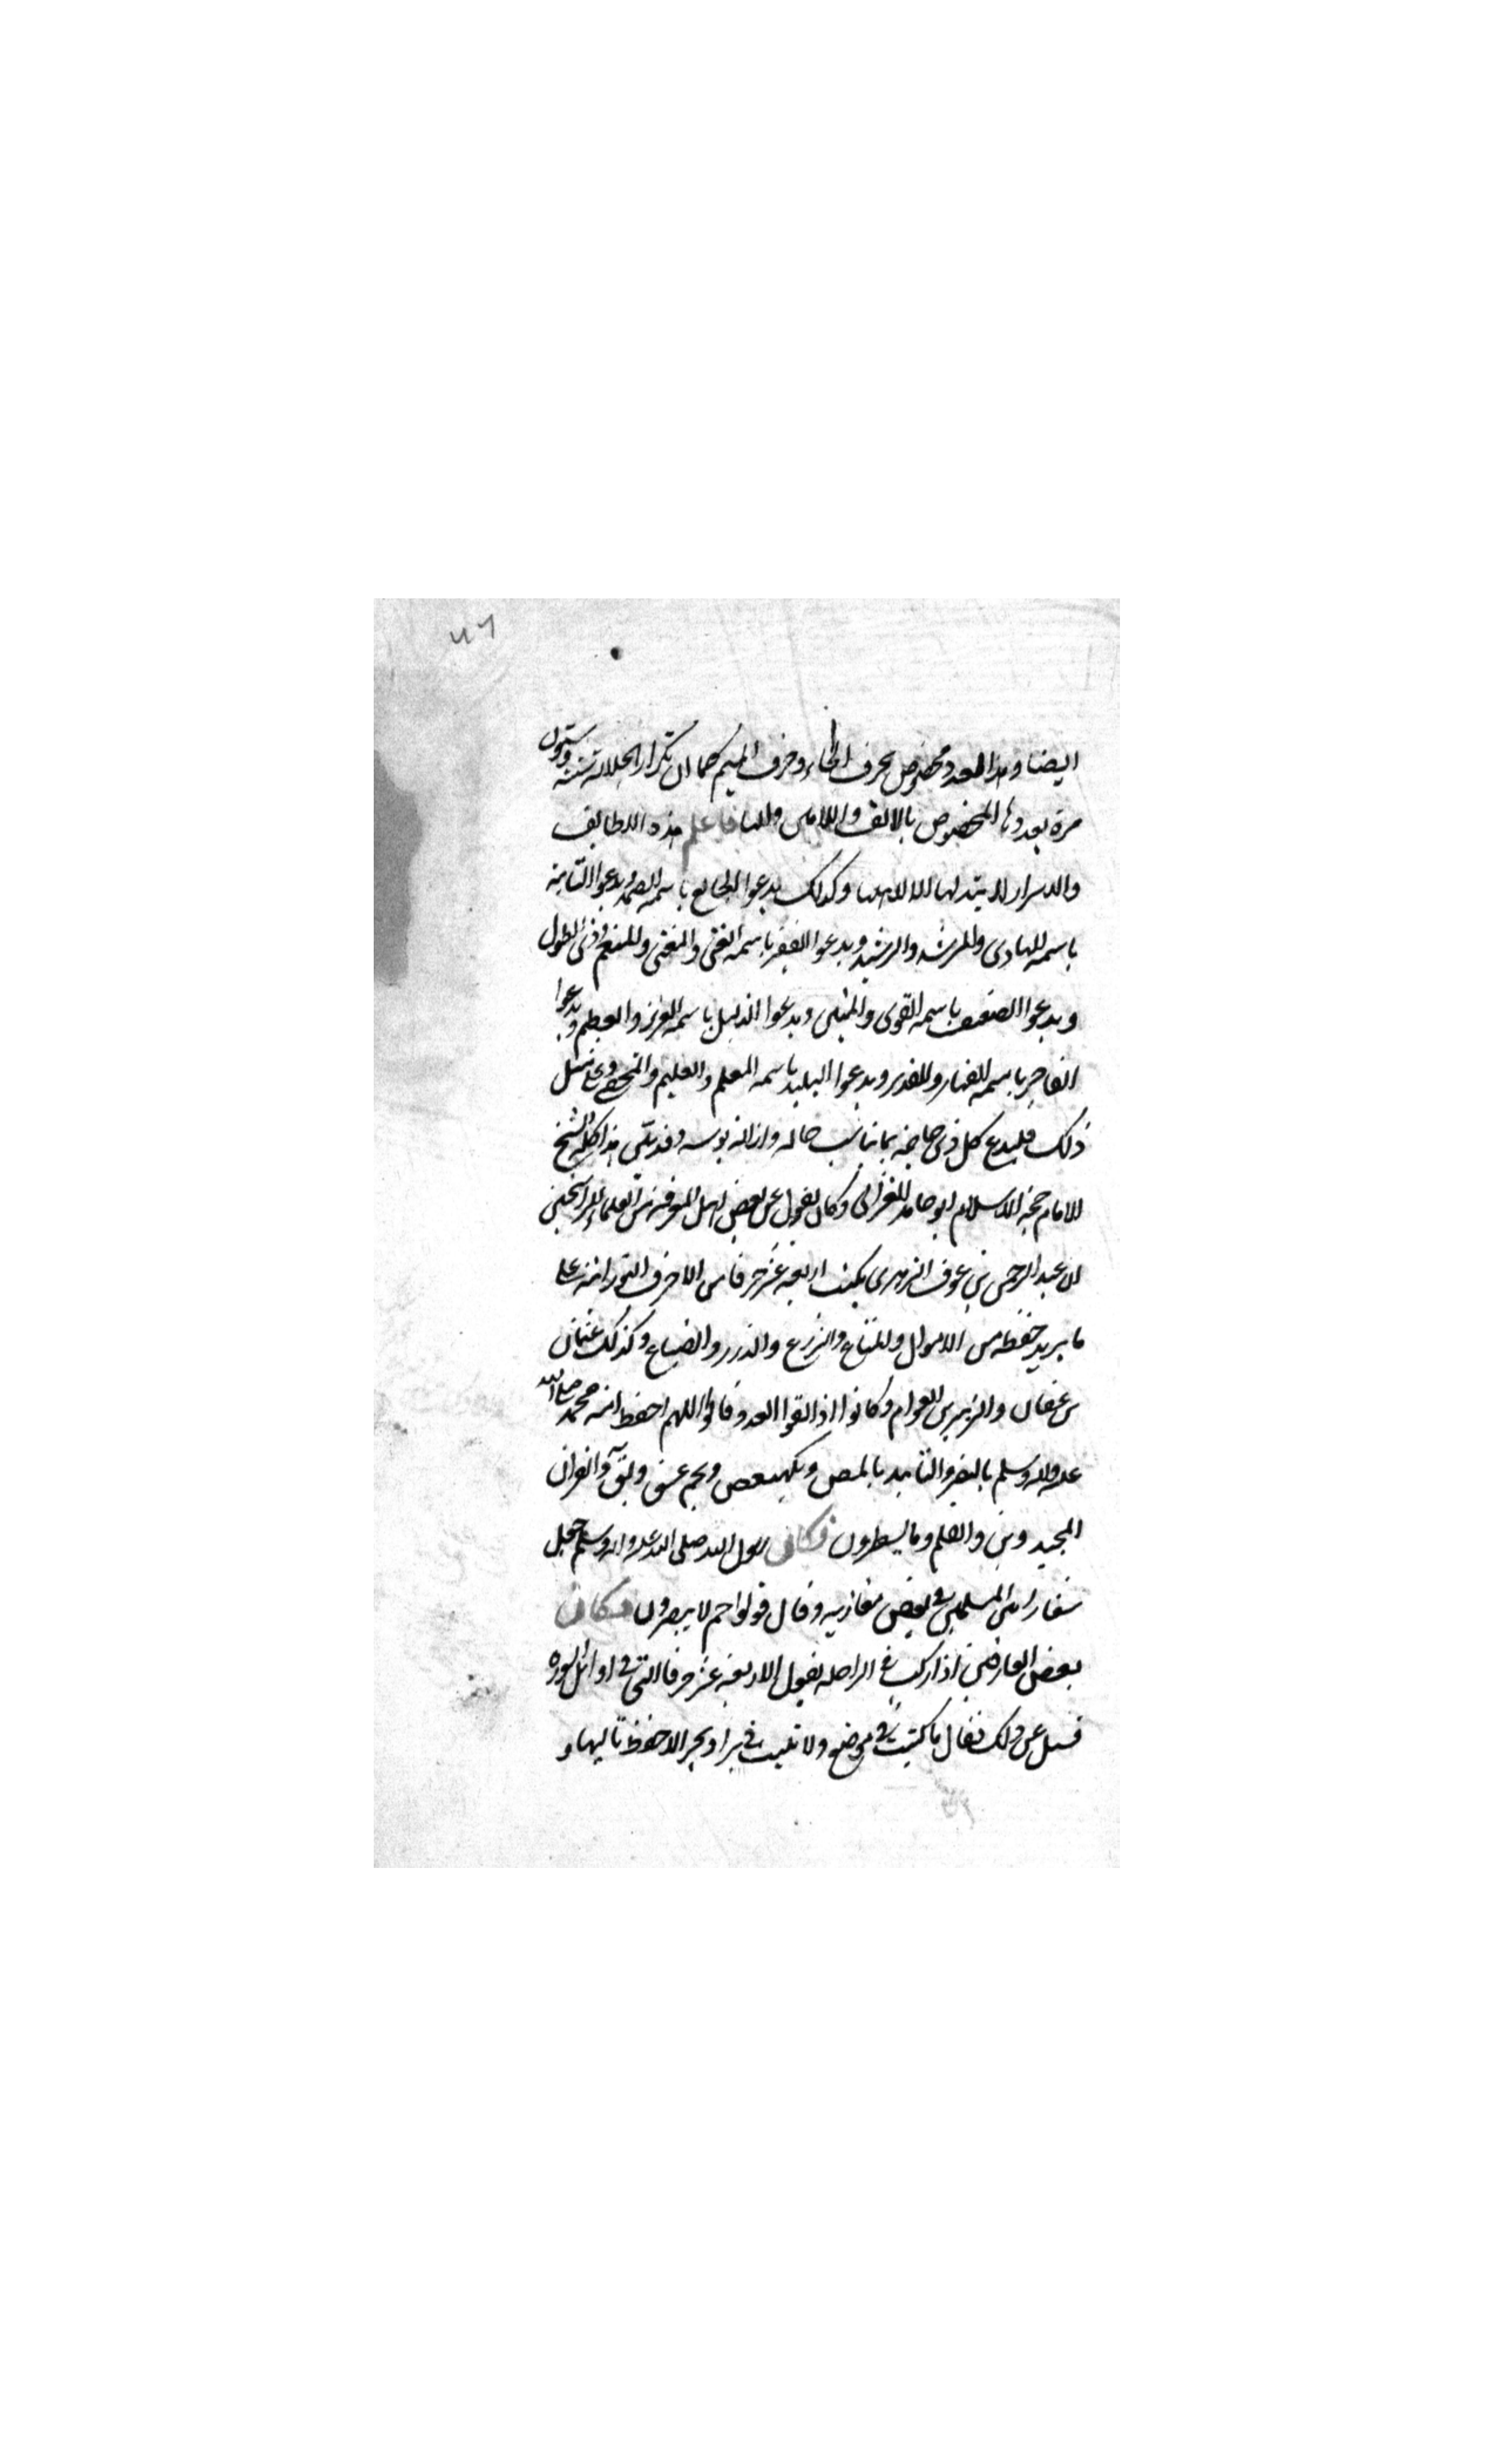 ايضا وهذا العدد مخصوص بحرف الحاء وحرف الميم كما ان تكرار الجلالة ستة وستون
مرة بعددها المخصوص بالالف واللامين والها فاعلم هذه اللطايف
والاسرار لا يتدلها الا اهلها وكذلك يدعوا الجايع باسمه الصمد ويدعوا التايه
باسمه الهادي والمرشد والرشيد ويدعوا الفقير باسمه الغني والمغني والمنعم وذي الطول
ويدعوا الضعيف باسمه القوي والمتين ويدعوا الذليل باسمه العزيز والعظيم ويدعوا
الفاجر باسمه القهار والقدير ويدعوا البليد باسمه المعلم والعليم والمحصي وعلى مثل
ذلك فليدع كل ذي حاجة بما يناسب حاله وازالة بوسه وقد بين هذا كله الشيخ
الامام حجة الاسلام ابو حامد الغزالي وكان يقول عن بعض اهل المعرفة من العلماء الراسخين
ان عبد الرحمن بن عوف الزهري يكتب اربعة عشر حرفا من الاحرف النورانية على
ما يريد حفظه من الاموال والمتاع والزرع والدرر والضياع وكذلك عثمان
بن عفان والزبير بن العوام وكانوا اذا لقوا العدو قالوا اللهم احفظ امة محمد صلى الله
عليه واله وسلم بالنصر والتاييد بالمص وبكهيعص وبحم عسق وبق والقران
المجيد ون والقلم وما يسطرون فكان رسول الله صلى الله عليه واله وسلم جعل
شعار امن المسلمين في بعض مغازيه وقال قولوا حم لا يبصرون فكان
بعض العارفين اذا ركب في الراحلة يقول الاربعة عشر حرفا التي في اوائل السورة
فسيل عن ذلك فقال ما كتبت في موضع ولا تليت في بر او بحر الا حفظ تاليها و